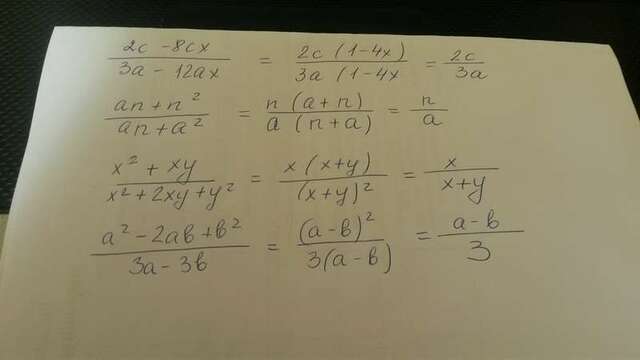 (2c - 8cx)/(3a - 12ax) = (2c (1-4x))/(3a (1-4x) = 2c/3a
(an + n²)/(an + a²) = (n (a+n))/(a (n+a)) = n/a
(x² + xy)/(x² + 2xy + y²) = (x (x+y))/((x+y)²) = x/(x+y)
(a² - 2ab + b²)/(3a - 3b) = ((a-b)²)/(3(a-b)) = (a-b)/3